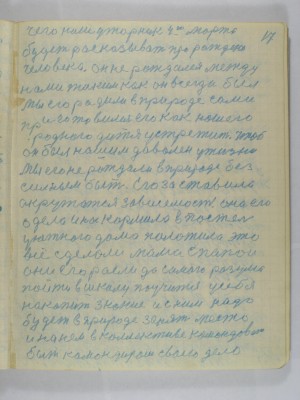 17
чего
марта
будет рассказывать про рождение
человека. он не рождался между
нами таким как он всегда был
Мы его родили в природе сами
приготовили его как нашего
родного дитя устретить. чтоб
он был нашим доволен у жизни
Мы его не рождали в природе без
сильным быть. Его заставила
окружатся зависемость она его
одела и накормила в постел
уютного дома положила это
всё сделали мама с папой
они его растили до самого разумея
пойти в школу поучится у себя
накопит знание и с ним надо
будет в природе занят место
и на нем в коллективе командовать
быть командиром своего дела